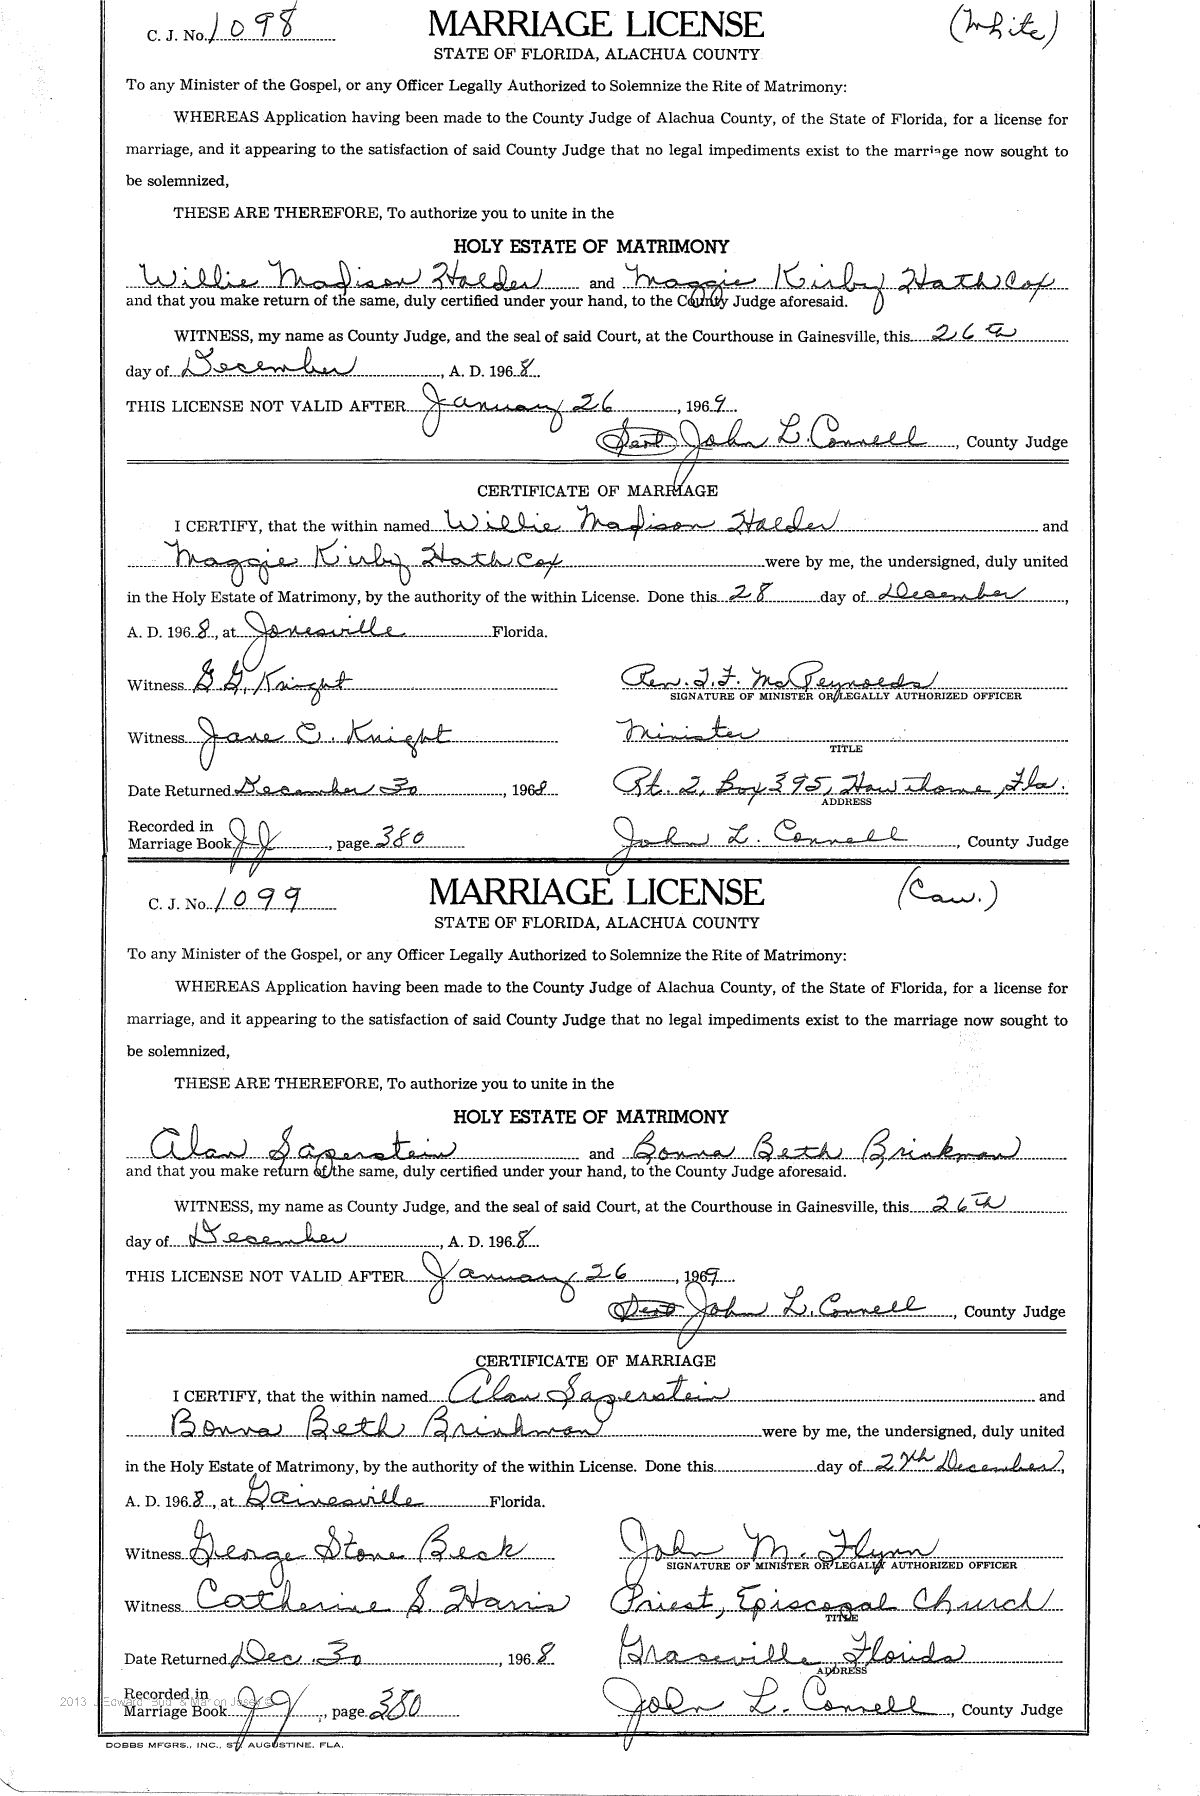 C. J. No. 1098 MARRIAGE LICENSE (White)
STATE OF FLORIDA, ALACHUA COUNTY
To any Minister of the Gospel, or any Officer Legally Authorized to Solemnize the Rite of Matrimony:
WHEREAS Application having been made to the County Judge of Alachua County, of the State of Florida, for a license for
marriage, and it appearing to the satisfaction of said County Judge that no legal impediments exist to the marriage now sought to
be solemnized,
THESE ARE THEREFORE, To authorize you to unite in the
HOLY ESTATE OF MATRIMONY
Willie Madison Holder and Maggie Kirby Hath Cox
and that you make return of the same, duly certified under your hand, to the County Judge aforesaid.
WITNESS, my name as County Judge, and the seal of said Court, at the Courthouse in Gainesville, this 26th
day of December, A. D. 1968.
THIS LICENSE NOT VALID AFTER January 26, 1969.
John L. Connell, County Judge
CERTIFICATE OF MARRIAGE
I CERTIFY, that the within named Willie Madison Holder and
Maggie Kirby Hath Cox were by me, the undersigned, duly united
in the Holy Estate of Matrimony, by the authority of the within License. Done this 28 day of December,
A. D. 1968, at Jonesville Florida.
Witness G. G. Knight Rev. T. F. McReynolds
SIGNATURE OF MINISTER OR LEGALLY AUTHORIZED OFFICER
Witness Jane C. Knight Minister
TITLE
Date Returned December 30, 1968 Rt. 2, Box 395, Hawthorne, Fla.
ADDRESS
Recorded in
Marriage Book JJ, page 380 John L. Connell, County Judge
C. J. No. 1099 MARRIAGE LICENSE (Cau.)
STATE OF FLORIDA, ALACHUA COUNTY
To any Minister of the Gospel, or any Officer Legally Authorized to Solemnize the Rite of Matrimony:
WHEREAS Application having been made to the County Judge of Alachua County, of the State of Florida, for a license for
marriage, and it appearing to the satisfaction of said County Judge that no legal impediments exist to the marriage now sought to
be solemnized,
THESE ARE THEREFORE, To authorize you to unite in the
HOLY ESTATE OF MATRIMONY
Alan Saperstein and Bonna Beth Brinkman
and that you make return of the same, duly certified under your hand, to the County Judge aforesaid.
WITNESS, my name as County Judge, and the seal of said Court, at the Courthouse in Gainesville, this 26th
day of December, A. D. 1968.
THIS LICENSE NOT VALID AFTER January 26, 1969.
John L. Connell, County Judge
CERTIFICATE OF MARRIAGE
I CERTIFY, that the within named Alan Saperstein and
Bonna Beth Brinkman were by me, the undersigned, duly united
in the Holy Estate of Matrimony, by the authority of the within License. Done this day of 27th December,
A. D. 1968, at Gainesville Florida.
Witness George Stone Beck John M. Flynn
SIGNATURE OF MINISTER OR LEGALLY AUTHORIZED OFFICER
Witness Catherine S. Harris Priest, Episcopal Church
TITLE
Date Returned Dec. 30, 1968 Graceville Florida
ADDRESS
Recorded in
Marriage Book JJ, page 380 John L. Connell, County Judge
DOBBS MFGRS., INC., ST. AUGUSTINE, FLA.